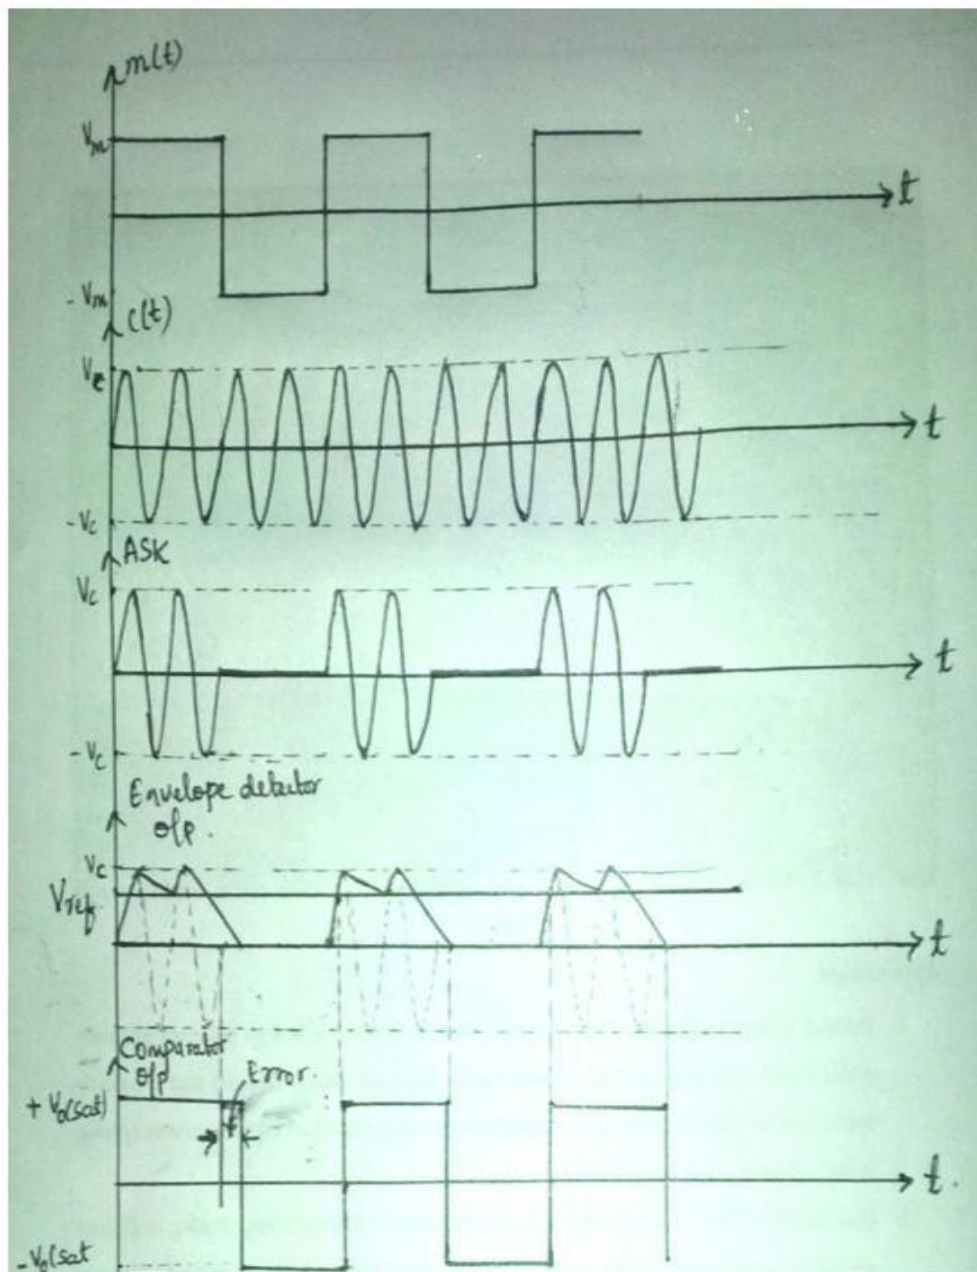 m(t)
Vm
t
- Vm
C(t)
Vc
t
-Vc
ASK
Vc
t
-Vc
Envelope detector
o/p.
Vc
Vref
t
Comparator
o/p
Error.
+ Vo(sat)
t.
- Vo(sat